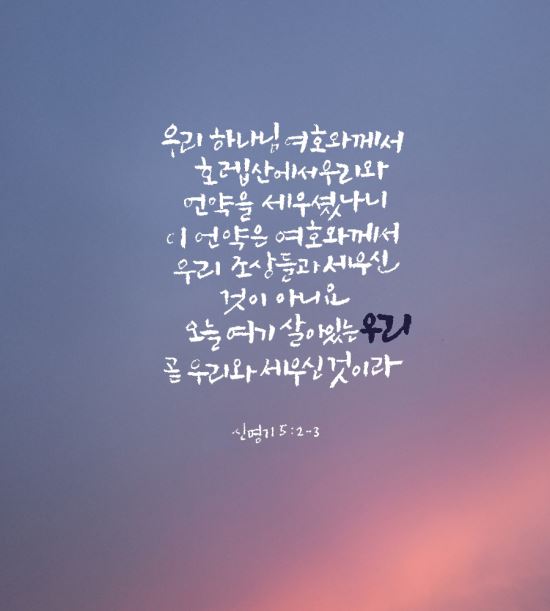 우리 하나님 여호와께서
호렙산에서 우리와
언약을 세우셨나니
이 언약은 여호와께서
우리 조상들과 세우신
것이 아니요
오늘 여기 살아있는 우리
곧 우리와 세우신 것이라
신명기 5:2-3